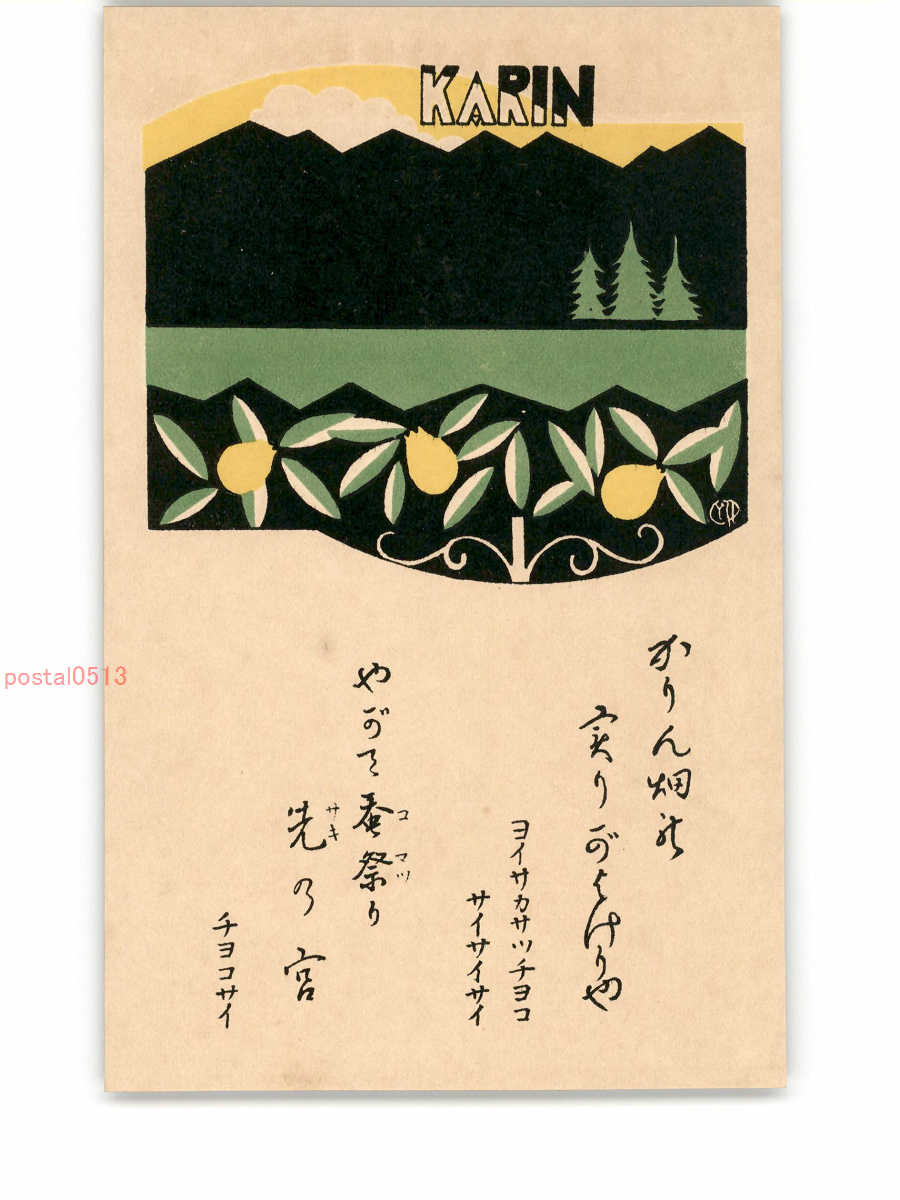 KARIN
かりん畑の
実りがよけりや
ヨイサカサツチヨコ
サイサイサイ
やがて蚕祭り
コ マツ
先の宮
サキ
チヨコサイ
postal0513